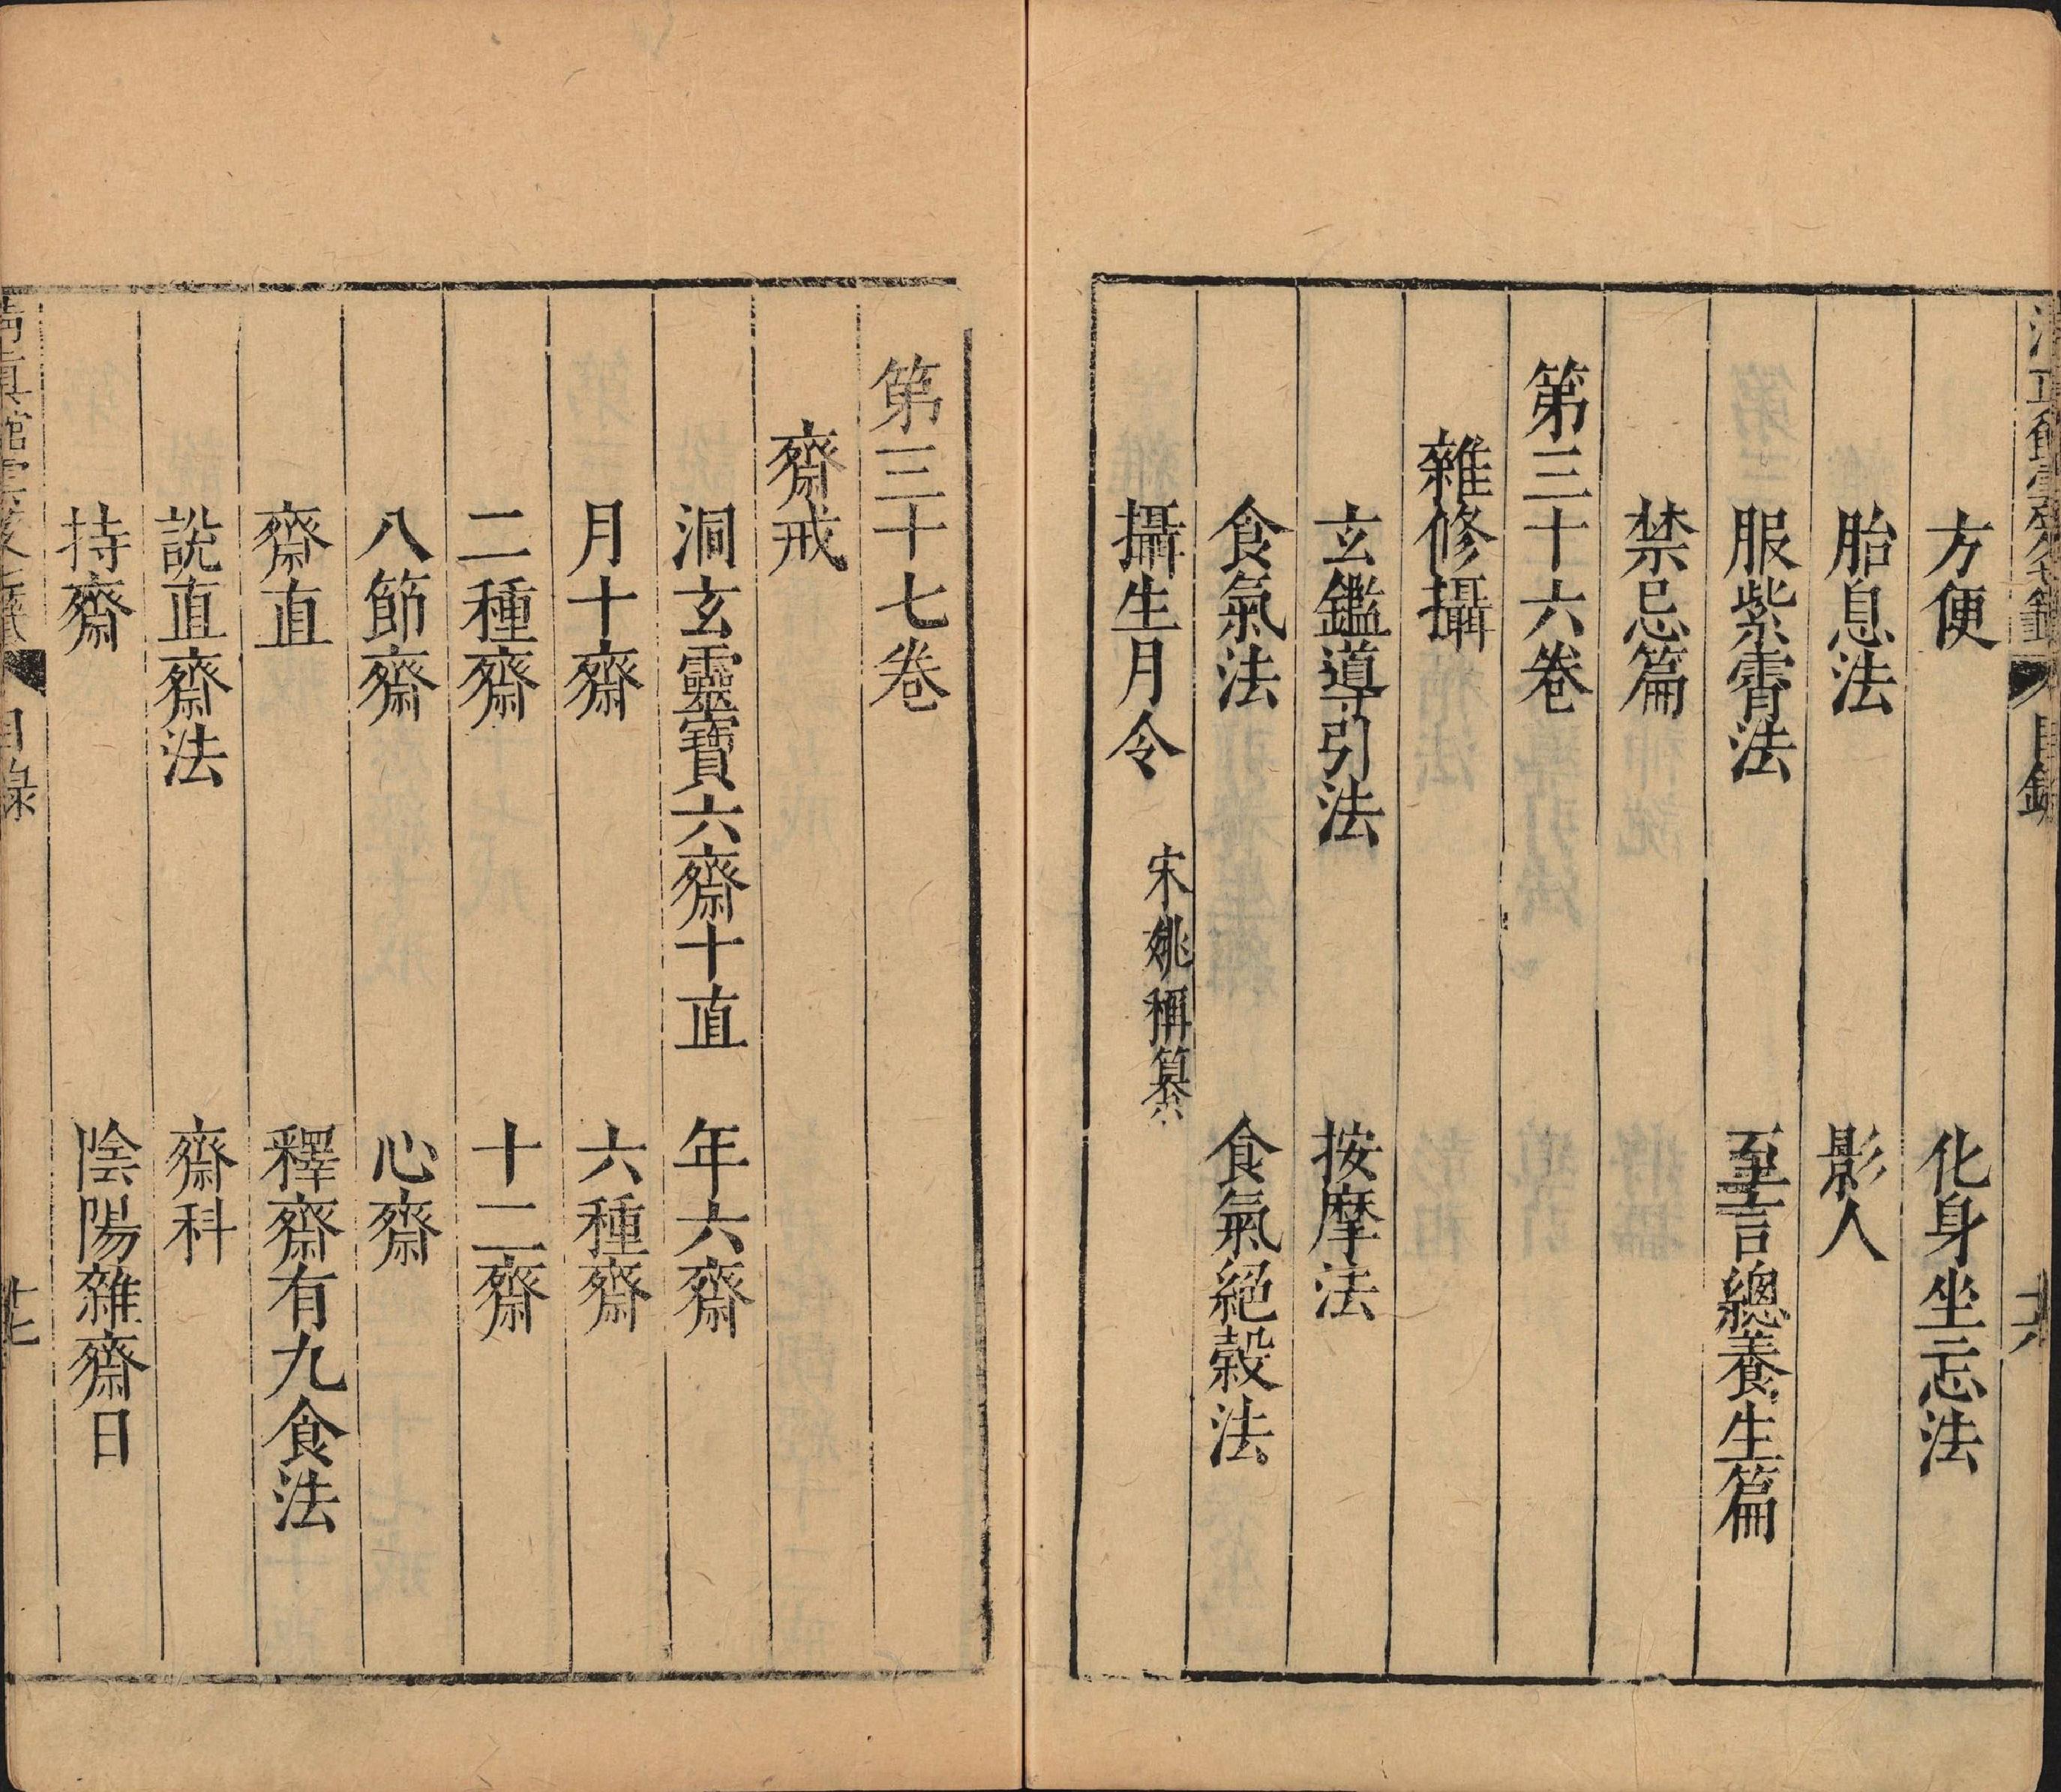 方便 化身坐忘法
胎息法 影人
服紫霄法 至言總養生篇
禁忌篇
第三十六卷
雜修攝
玄鑑導引法 按摩法
食氣法 食氣絕穀法
攝生月令 宋姚稱纂
第三十七卷
齋戒
洞玄靈寶六齋十直 年六齋
月十齋 六種齋
二種齋 十二齋
八節齋 心齋
齋直 釋齋有九食法
說直齋法 齋科
持齋 陰陽雜齋日
目錄